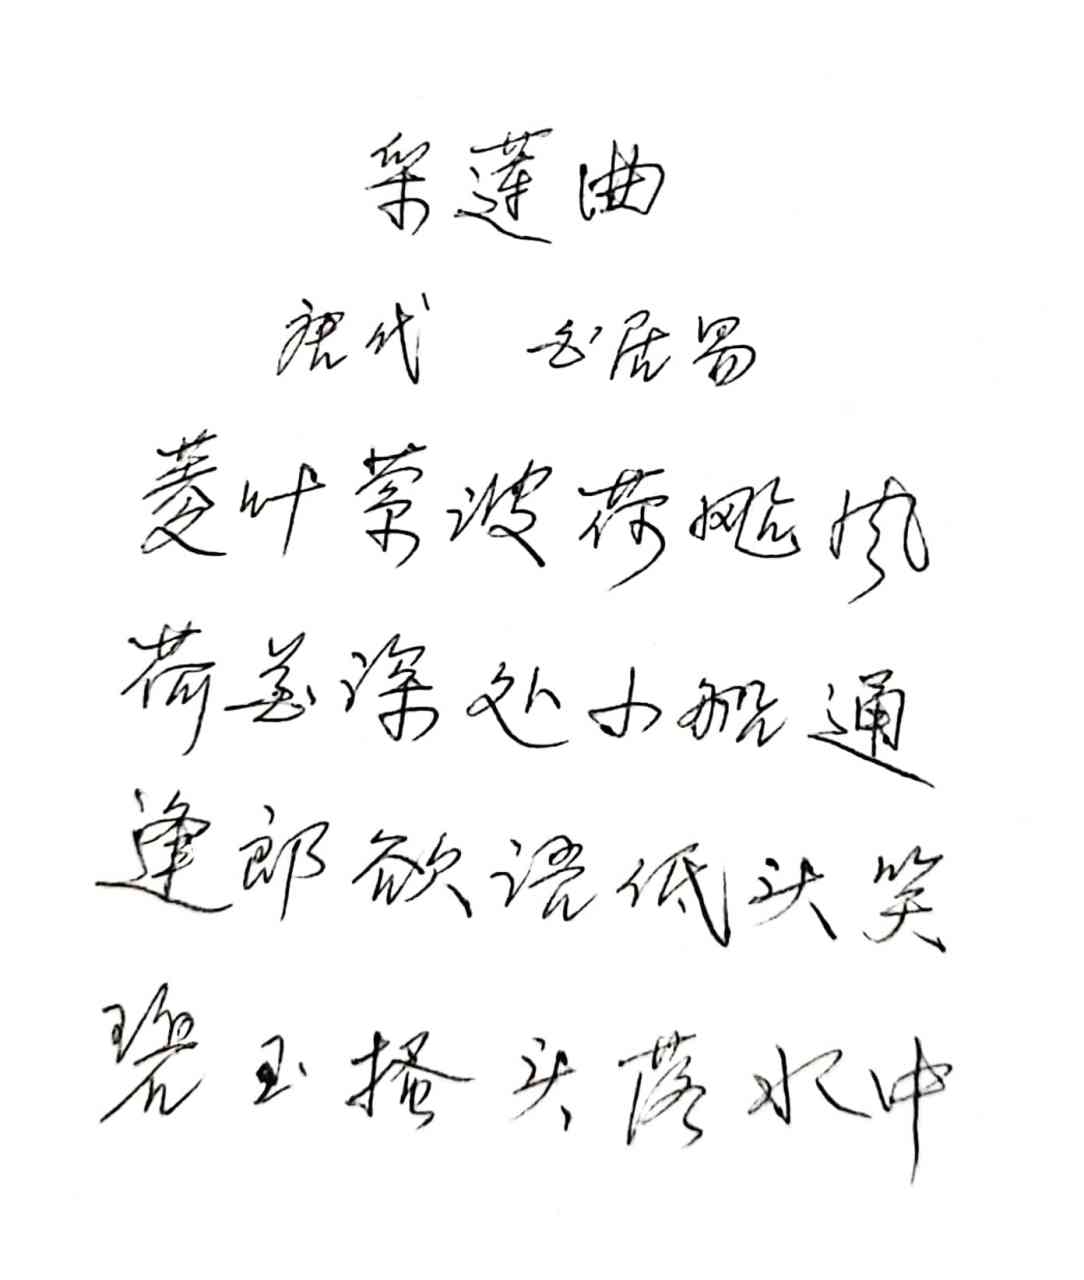 采莲曲
唐代 白居易
菱叶萦波荷飐风
荷花深处小船通
逢郎欲语低头笑
碧玉搔头落水中